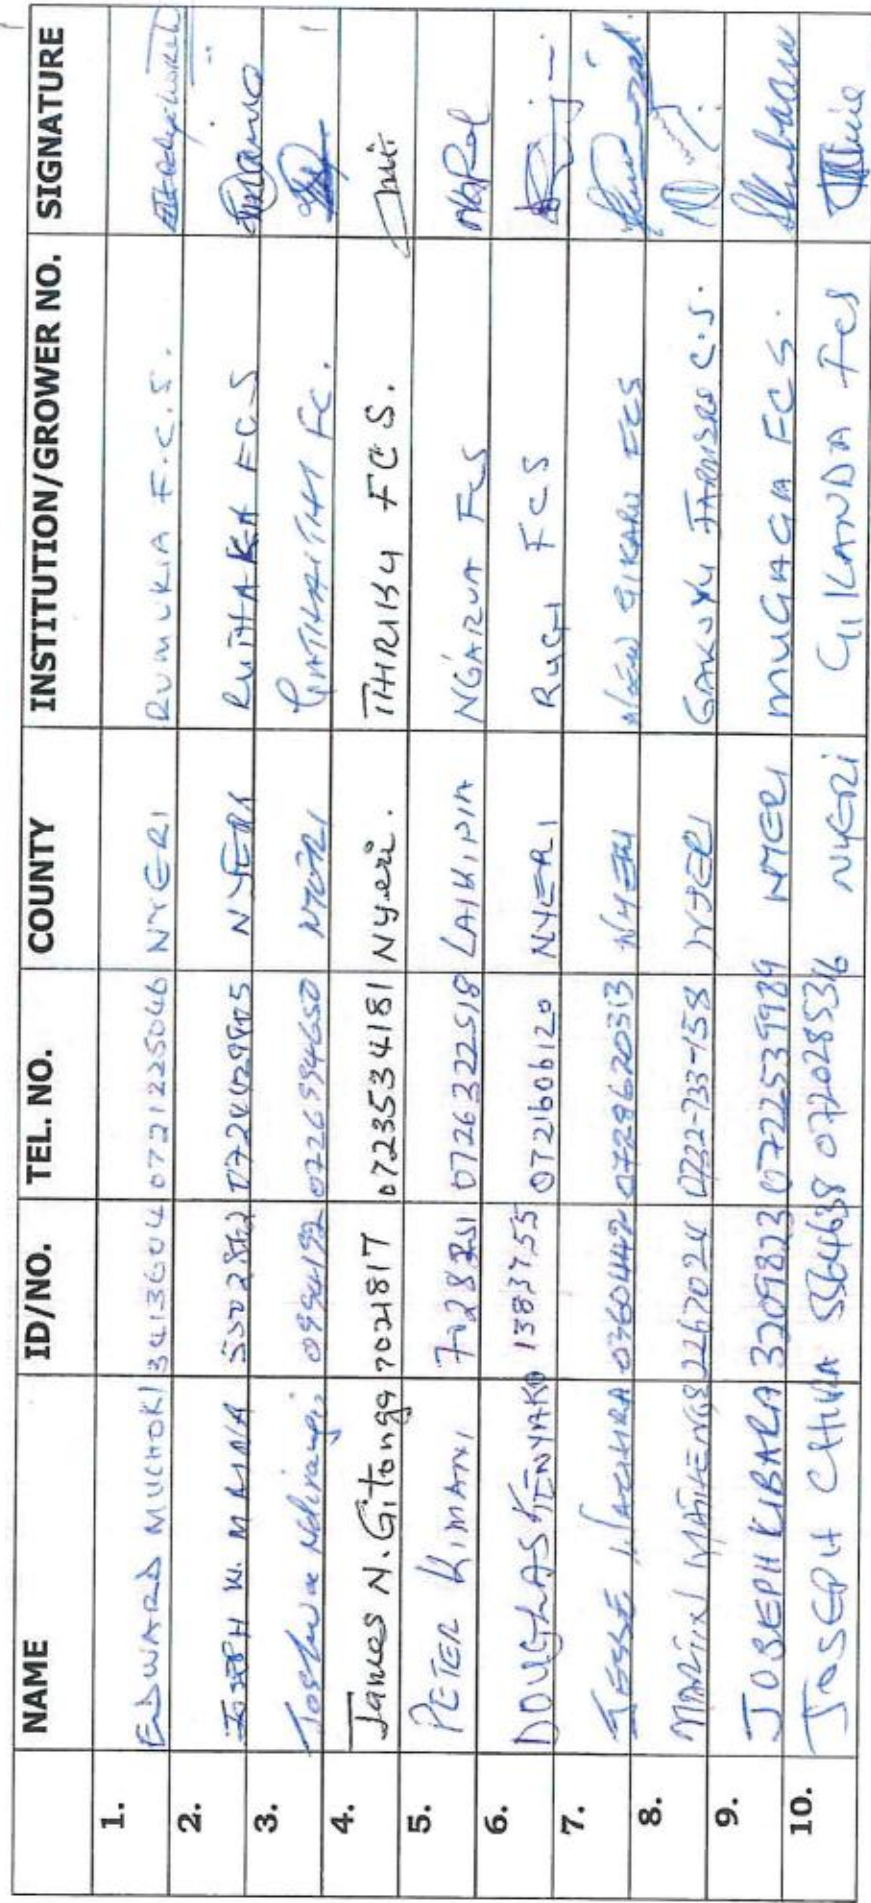 NAME ID/NO. TEL. NO. COUNTY INSTITUTION/GROWER NO. SIGNATURE
1. EDWARD MUCHOKI 3413604 0721225046 NYERI RUMUKIA F.C.S.
2. JOSEPH W. MAINA NYERI RUTHAKA FCS
3. Joshua Ndirangu NYERI GATHAITHI FC.
4. James N. Gitonga 7021817 0723534181 Nyeri. THIRIKU FCS.
5. PETER KIMANI 0726322518 LAIKIPIA NGARUA FCS
6. DOUGLAS 1383755 0721606120 NYERI RUGI FCS
7. JESSE WACHIRA 0360442 0728620313 NYERI NEW GIKARU FCS
8. MARTIN MATHENGE 2267024 0722-733-158 NYERI GAKUYU FARMERS C.S.
9. JOSEPH KIBARA 3209823 0722539989 NYERI MUGAGA FCS.
10. JOSEPH CHIRA 5564638 0720285346 NYERI GIKANDA FCS